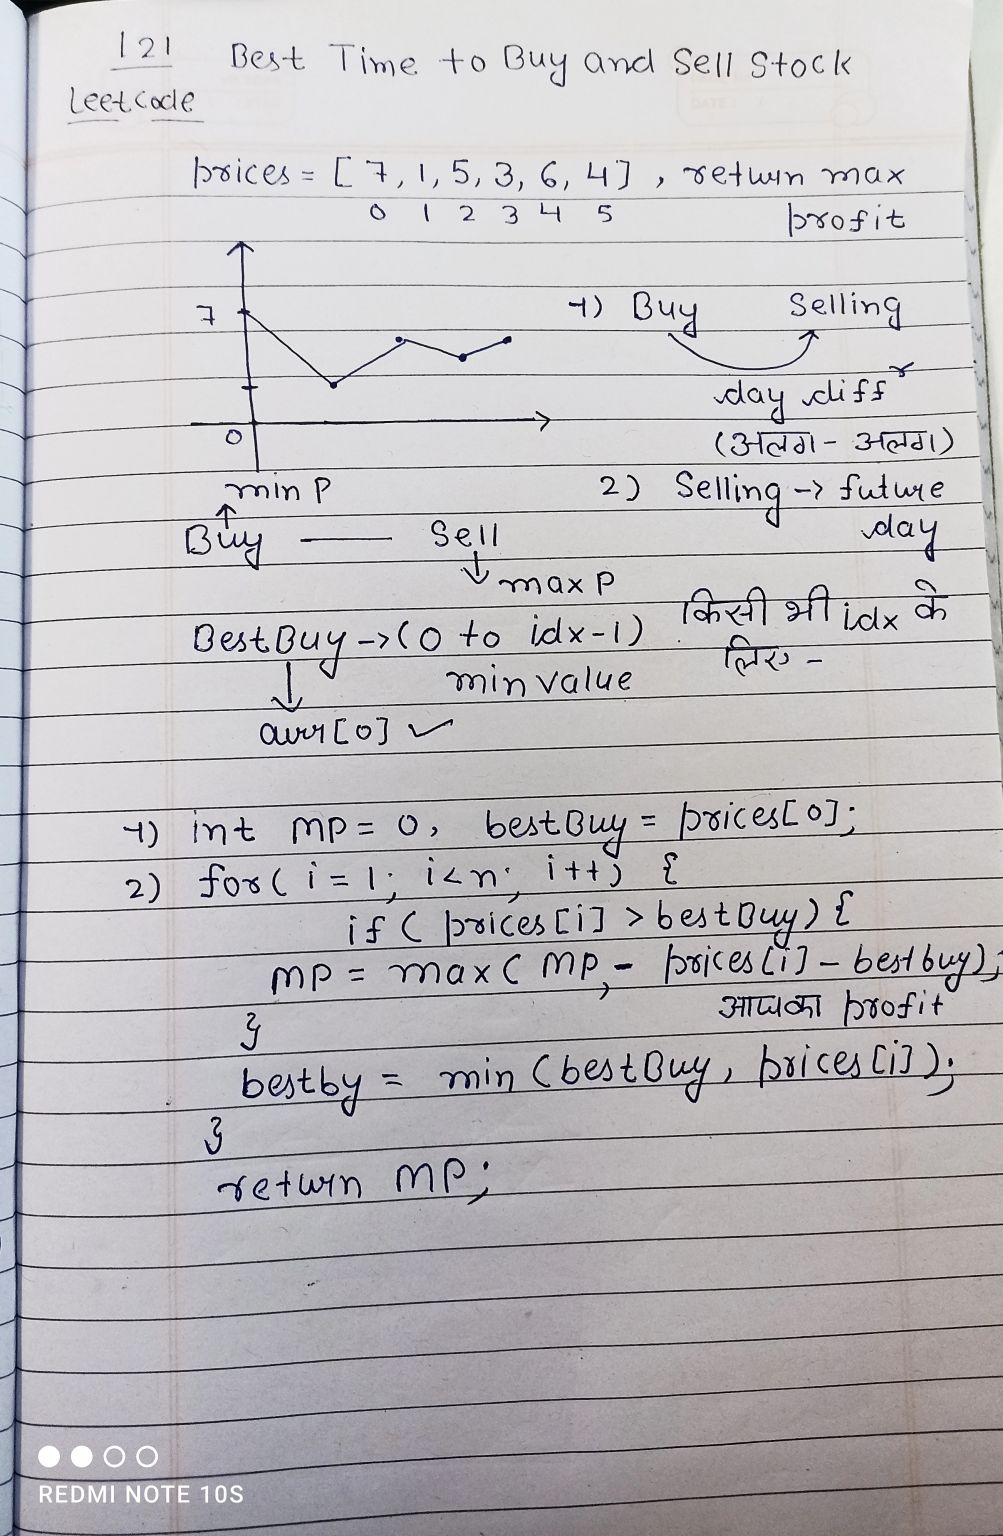 121 Best Time to Buy and Sell Stock
Leetcode
prices = [7, 1, 5, 3, 6, 4], return max
0 1 2 3 4 5 profit
7
0
1) Buy Selling
day diff
(अलग - अलग)
min P
2) Selling -> future
day
Buy — Sell
max P
BestBuy -> (0 to idx-1) किसी भी idx के
लिए -
min value
arr[0] ✓
1) int mp = 0, bestBuy = prices[0];
2) for( i = 1; i<n; i++) {
if ( prices[i] > bestBuy) {
mp = max( mp, - prices[i] - bestbuy);
आपका profit
}
bestby = min (bestBuy, prices[i]);
}
return mp;
REDMI NOTE 10S